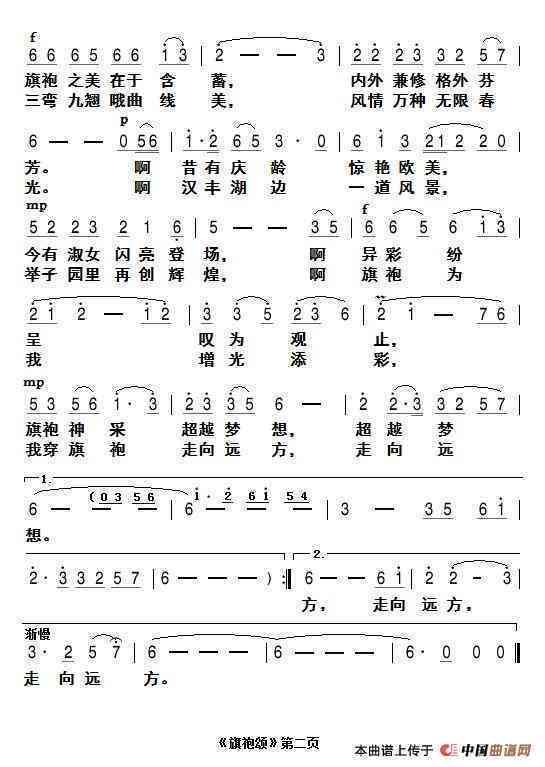 f
6 6 6 5 6 6 1 3 | 2 — — 3 | 2 2 2 3 2 2 5 7 |
旗袍 之美 在于 含 蓄， 内外 兼修 格外 芬
三弯 九翘 哦曲 线 美， 风情 万种 无限 春
p
6 — — 0 5 6 | 1 · 2 6 5 3 · 0 | 2 3 1 2 1 2 2 0 |
芳。 啊 昔有庆龄 惊艳欧美，
光。 啊 汉丰湖边 一道风景，
mp f
5 2 2 3 2 1 6 | 5 — — 3 5 | 6 6 5 6 1 3 |
今有 淑女 闪亮登 场， 啊 异彩 纷
举子 园里 再创辉 煌， 啊 旗袍 为
2 1 2 — 1 2 | 3 3 5 2 3 6 | 2 1 — 7 6 |
呈 叹为 观 止，
我 增光 添 彩，
mp
5 3 5 6 1 · 3 | 2 3 3 5 6 — | 2 2 · 3 3 2 5 7 |
旗袍 神 采 超越 梦 想， 超越 梦
我穿 旗 袍 走向 远 方， 走向 远
1.
(0 3 5 6 1 · 2 6 1 5 4
6 — — — | 6 — — — | 3 — 3 5 6 1 |
想。
2.
2 · 3 3 2 5 7 | 6 — — ) :‖ 6 — 6 1 | 2 2 — 3 |
方， 走向 远方，
渐慢
3 · 2 5 7 | 6 — — — | 6 — — — | 6 · 0 0 0 ‖
走 向 远 方。
《旗袍颂》第二页
本曲谱上传于 中国曲谱网